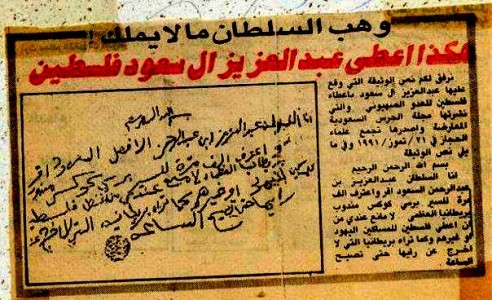 وهب السلطان مالا يملك !
هكذا اعطى عبدالعزيز ال سعود فلسطين
نرفق لكم نص الوثيقة التي وقع
عليها عبدالعزيز ال سعود باعطاء
فلسطين للعدو الصهيوني والتي
نشرتها مجلة الحرس السعودية
المعارضة واصدرها تجمع علماء
الحجاز في ٣١/تموز/١٩٩١ وفي ما
يلي نص الوثيقة
بسم الله الرحمن الرحيم
انا السلطان عبدالعزيز بن
عبدالرحمن السعود اقر واعترف الف
مرة للسير برسي كوكس مندوب
بريطانيا العظمى لا مانع عندي من
ان اعطي فلسطين للمساكين اليهود
او غيرهم وكما تراه بريطانيا التي لا
اخرج عن رايها حتى تصيح
الساعة
انا السلطان عبدالعزيز ابن عبدالرحمن الفيصل السعود اقر
واعترف الف مرة للسير برسي كوكس مندوب
بريطانيا العظمى لا مانع عندي فلسطين
للمساكين اليهود او غيرهم كما تراه بريطانيا التي لا اخرج عن
رايها حتى تصيح الساعة